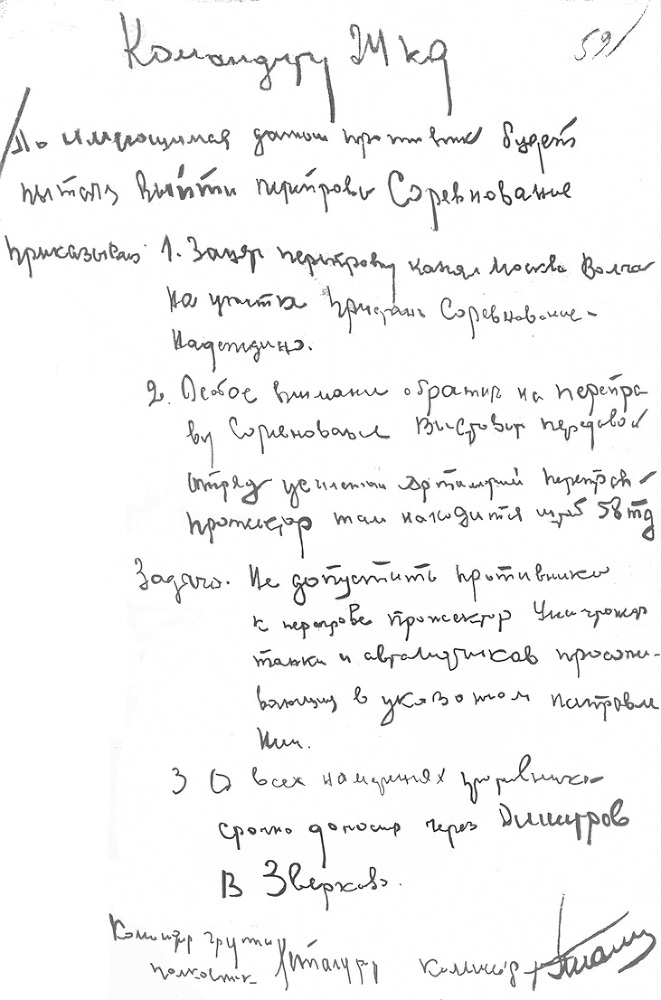 Командиру 24 кд
59
По имеющимся данным противник будет
пытаться выйти переправы Соревнование
Приказываю 1. Занять переправу канал Москва Волга
на участке Пристань Соревнование-
Надеждино.
2. Особое внимание обратить на перепра
ву Соревнование Выставить передовой
отряд усиленный артиллерией переправ
прожектор там находится штаб 58 тд
Задача. Не допустить противника
к переправе прожектор Уничтожать
танки и автоматчиков просачи-
вающих в указанном направле
нии.
3 О всех намерениях противника
срочно доносить через Дмитров
в Зверково.
Командир группы
полковник комиссар